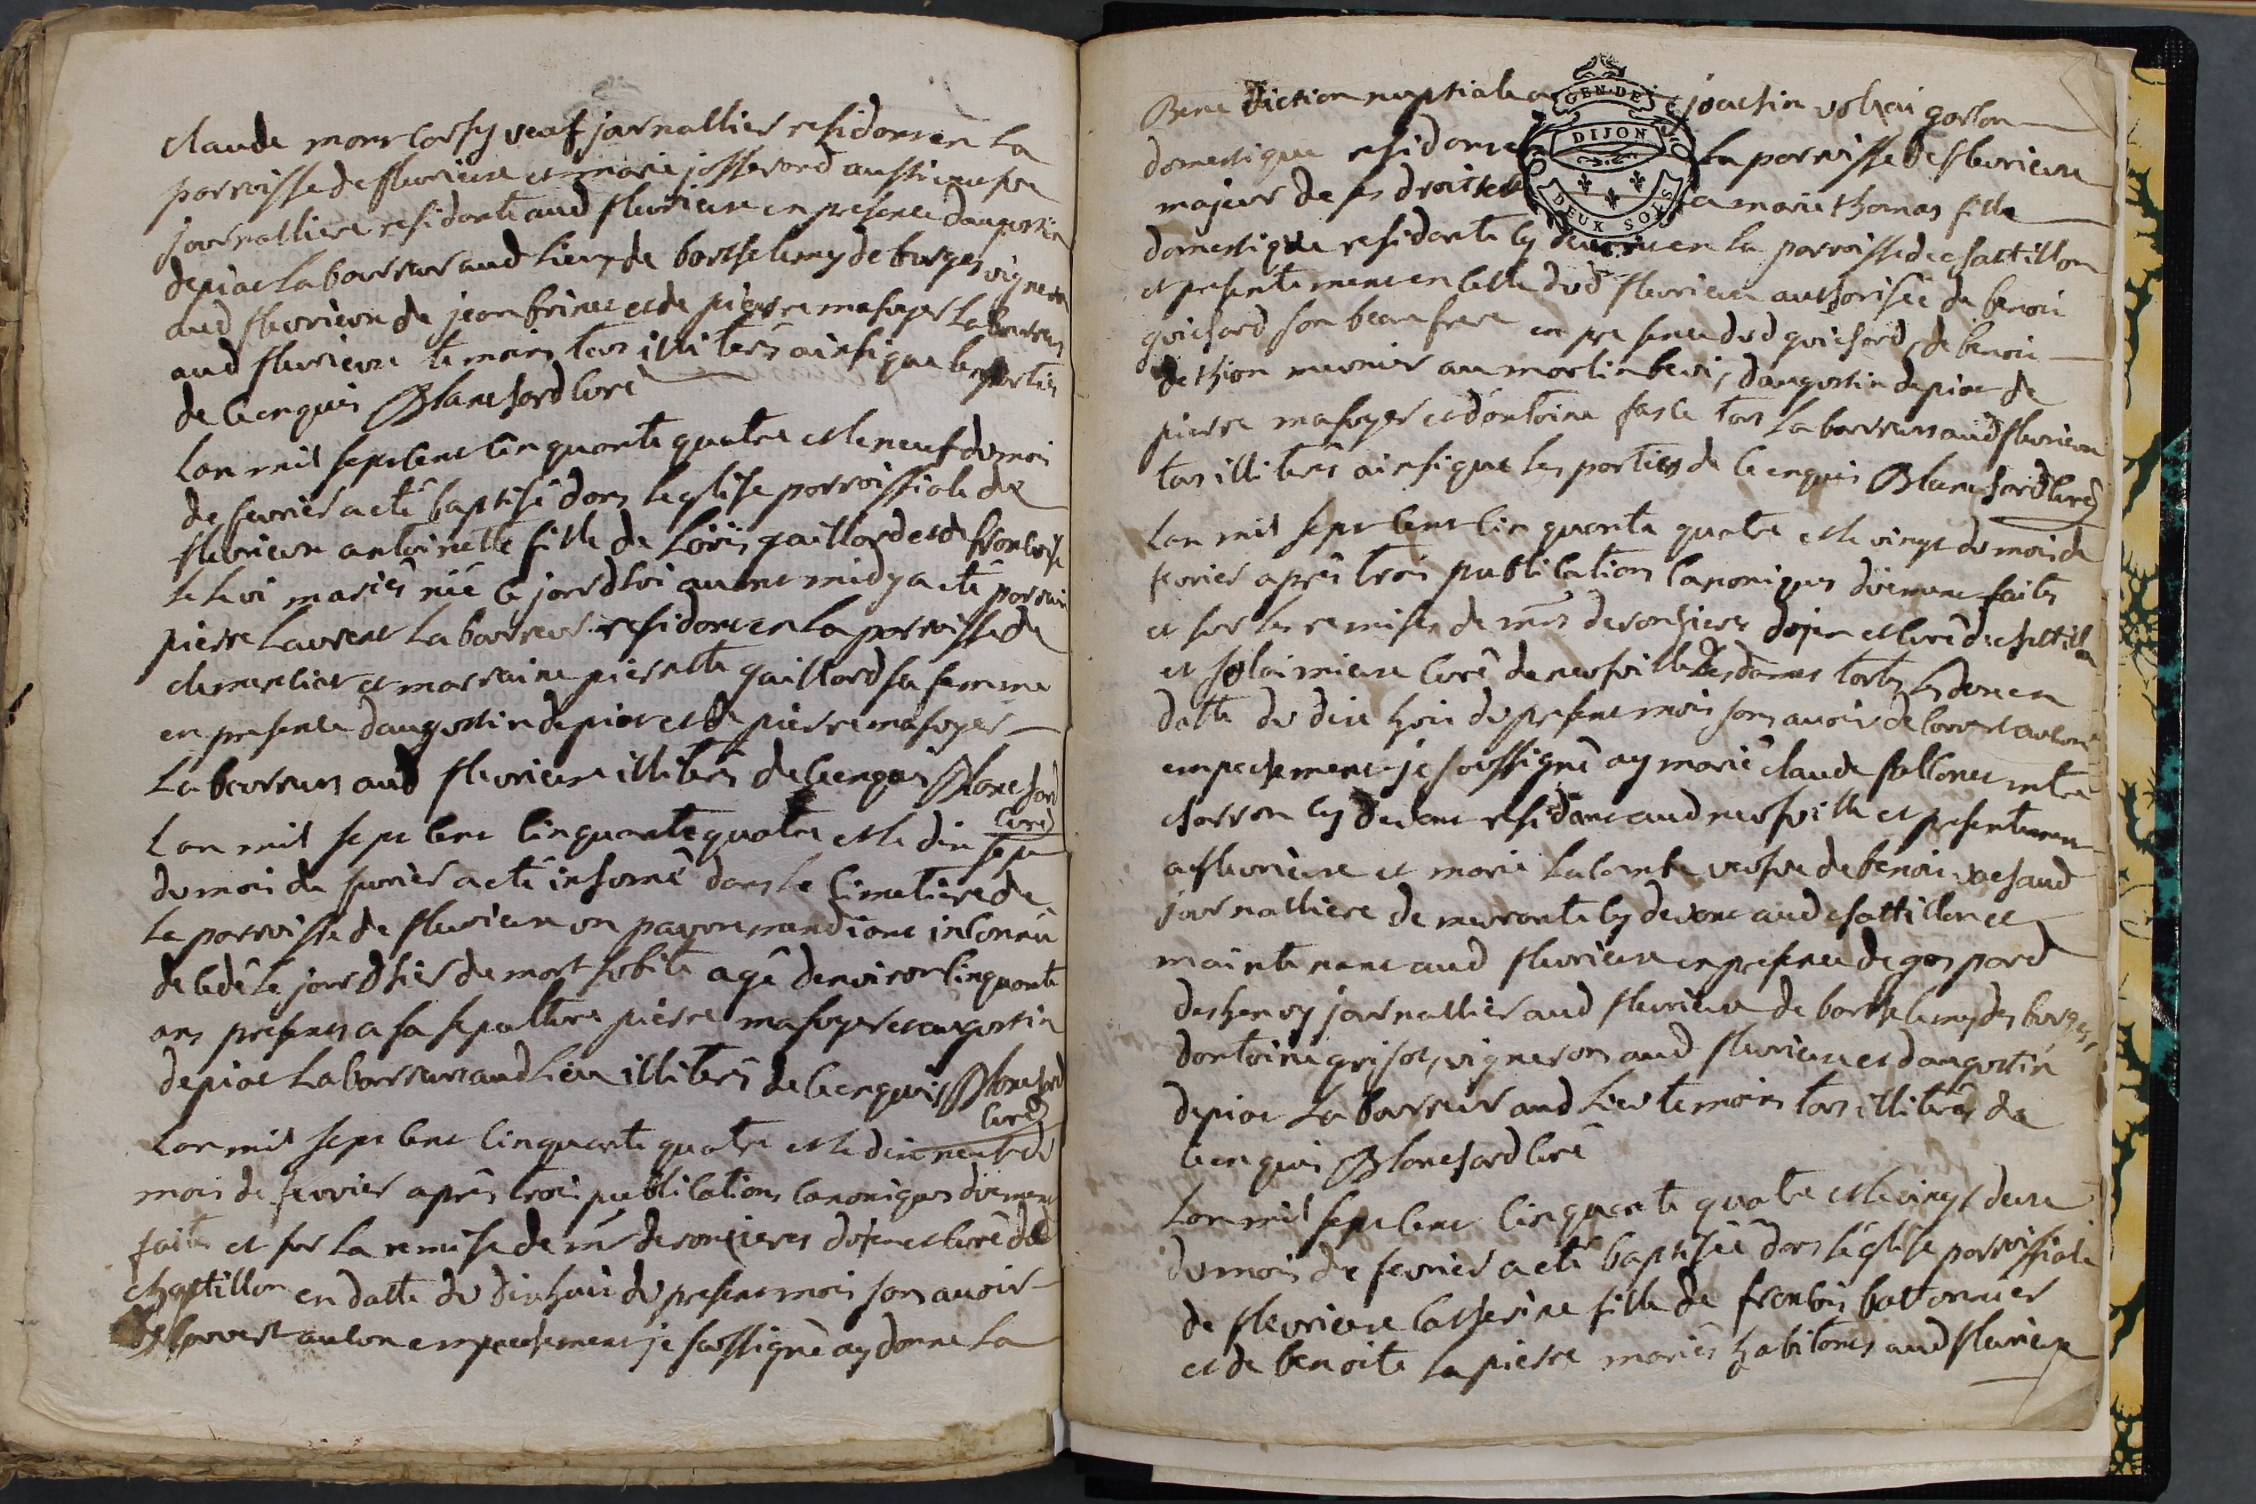 claude moncorsy veuf journallier residant en la
parroisse de fleurieux et marie josserand aussi veufve
journalliere residante aud fleurieux en presence daugustin
depiat laboureur aud lieu, de barthelemy deburges vigneron
aud fleurieux de jean brinet et de pierre masuyer laboureurs
aud fleurieux temoins tous illiterés ainsi que les parties
de ce enquis Blanchard curé
Lan mil sept cent cinquante quatre et le neuf du mois
de fevrier a eté baptisé dans leglise parroissiale de
fleurieux antoinette fille de Loüis gaillard et de francoise
leleui mariés née ce jourdhui avant midy a eté parrain
pierre Laurent laboureur residant en la parroisse de
clemenciat et marraine pierrette gaillard sa femme
en presence daugustin depiat et de pierre masuyer
laboureurs aud fleurieux illiterés de ce enquis Blanchard
curé
Lan mil sept cent cinquante quatre et le dix sept
du mois de fevrier a eté inhumé dans le cimetiere de
la parroisse de fleurieux un pauvre mandiant inconnu
decedé le jour dhier de mort subite agé denviron cinquante
ans presents a sa sepulture pierre masuyer et augustin
depiat laboureurs aud lieu illiterés de ce enquis Blanchard
curé
Lan mil sept cent cinquante quatre et le dix neuf du
mois de fevrier aprés trois publications canoniques düement
faites et sur la remise de mr deronzieres doyen et curé de
chattillon en datte du dix huit du present mois sans avoir
decouvert aucun empechement je soussigné ay donné la
Benediction nuptiale a joachin garcon
domestique residant la parroisse de fleurieux
majeur de ses droits et a marie thomas fille
domestique residante cy devant en la parroisse de chattillon
et presentement en celle dud fleurieux authorisée de benoit
guichard son beaufrere en presence dud guichard, de benoit
dethion munier au moulin daugustin depiat de
pierre masuyer et dantoine tous laboureurs aud fleurieux
tous illiterés ainsi que les parties de ce enquis Blanchard curé
Lan mil sept cent cinquante quatre et le vingt du mois de
fevrier aprés trois publications canoniques düement faites
et sur les remises de mrs deronzieres doyen et curé de chattillon
et curé de neufville les dames toutes les deux en
datte du dix huit du present mois sans avoir decouvert aucun
empechement je soussigné ay marié claude mtre
charron cy devant residant aud neufville et presentement
a fleurieux et marie lacombe veufve de benoit vachaud
journalliere demeurante cy devant aud chattillon et
maintenant aud fleurieux en presence de gaspard
journallier aud fleurieux de barthelemy desburges,
dantoine grisot, vignerons aud fleurieux et daugustin
depiat laboureur aud lieu temoins tous illiterés de
ce enquis Blanchard curé
Lan mil sept cent cinquante quatre et le vingt deux
du mois de fevrier a eté baptisée dans l'église parroissiale
de fleurieux catherine fille de francois battonnier
et de benoite lapierre mariés habitants aud fleurieux
GEN. DE
DIJON
DEUX SOLS